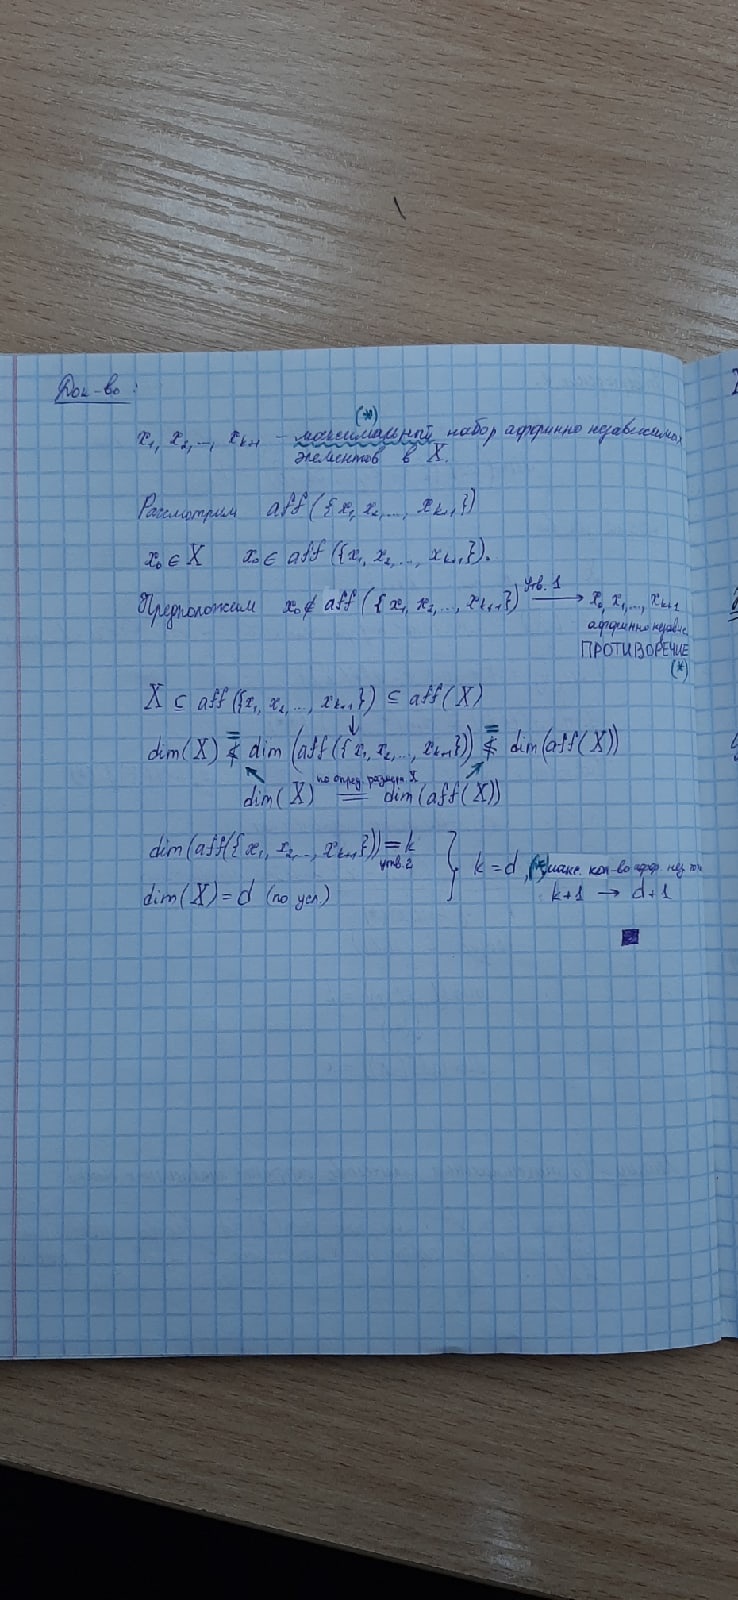 Док-во:
(*)
x₁, x₂, ..., xₖ₊₁ - максимальный набор аффинно независимых
элементов в X.
Рассмотрим aff({x₁, x₂, ..., xₖ₊₁})
x₀ ∈ X x₀ ∈ aff({x₁, x₂, ..., xₖ₊₁}).
Предположим x₀ ∉ aff({x₁, x₂, ..., xₖ₊₁}) утв. 1 → x₀, x₁, ..., xₖ₊₁
аффинно независ.
ПРОТИВОРЕЧИЕ
(*)
X ⊆ aff({x₁, x₂, ..., xₖ₊₁}) ⊆ aff(X)
↓
dim(X) ≤ = dim(aff({x₁, x₂, ..., xₖ₊₁})) ≤ = dim(aff(X))
dim(X) по опред. разм. X = dim(aff(X))
dim(aff({x₁, x₂, ..., xₖ₊₁})) = k
утв. 2
dim(X) = d (по усл.)
} k = d, макс. кол-во афф. нез.
k+1 → d+1